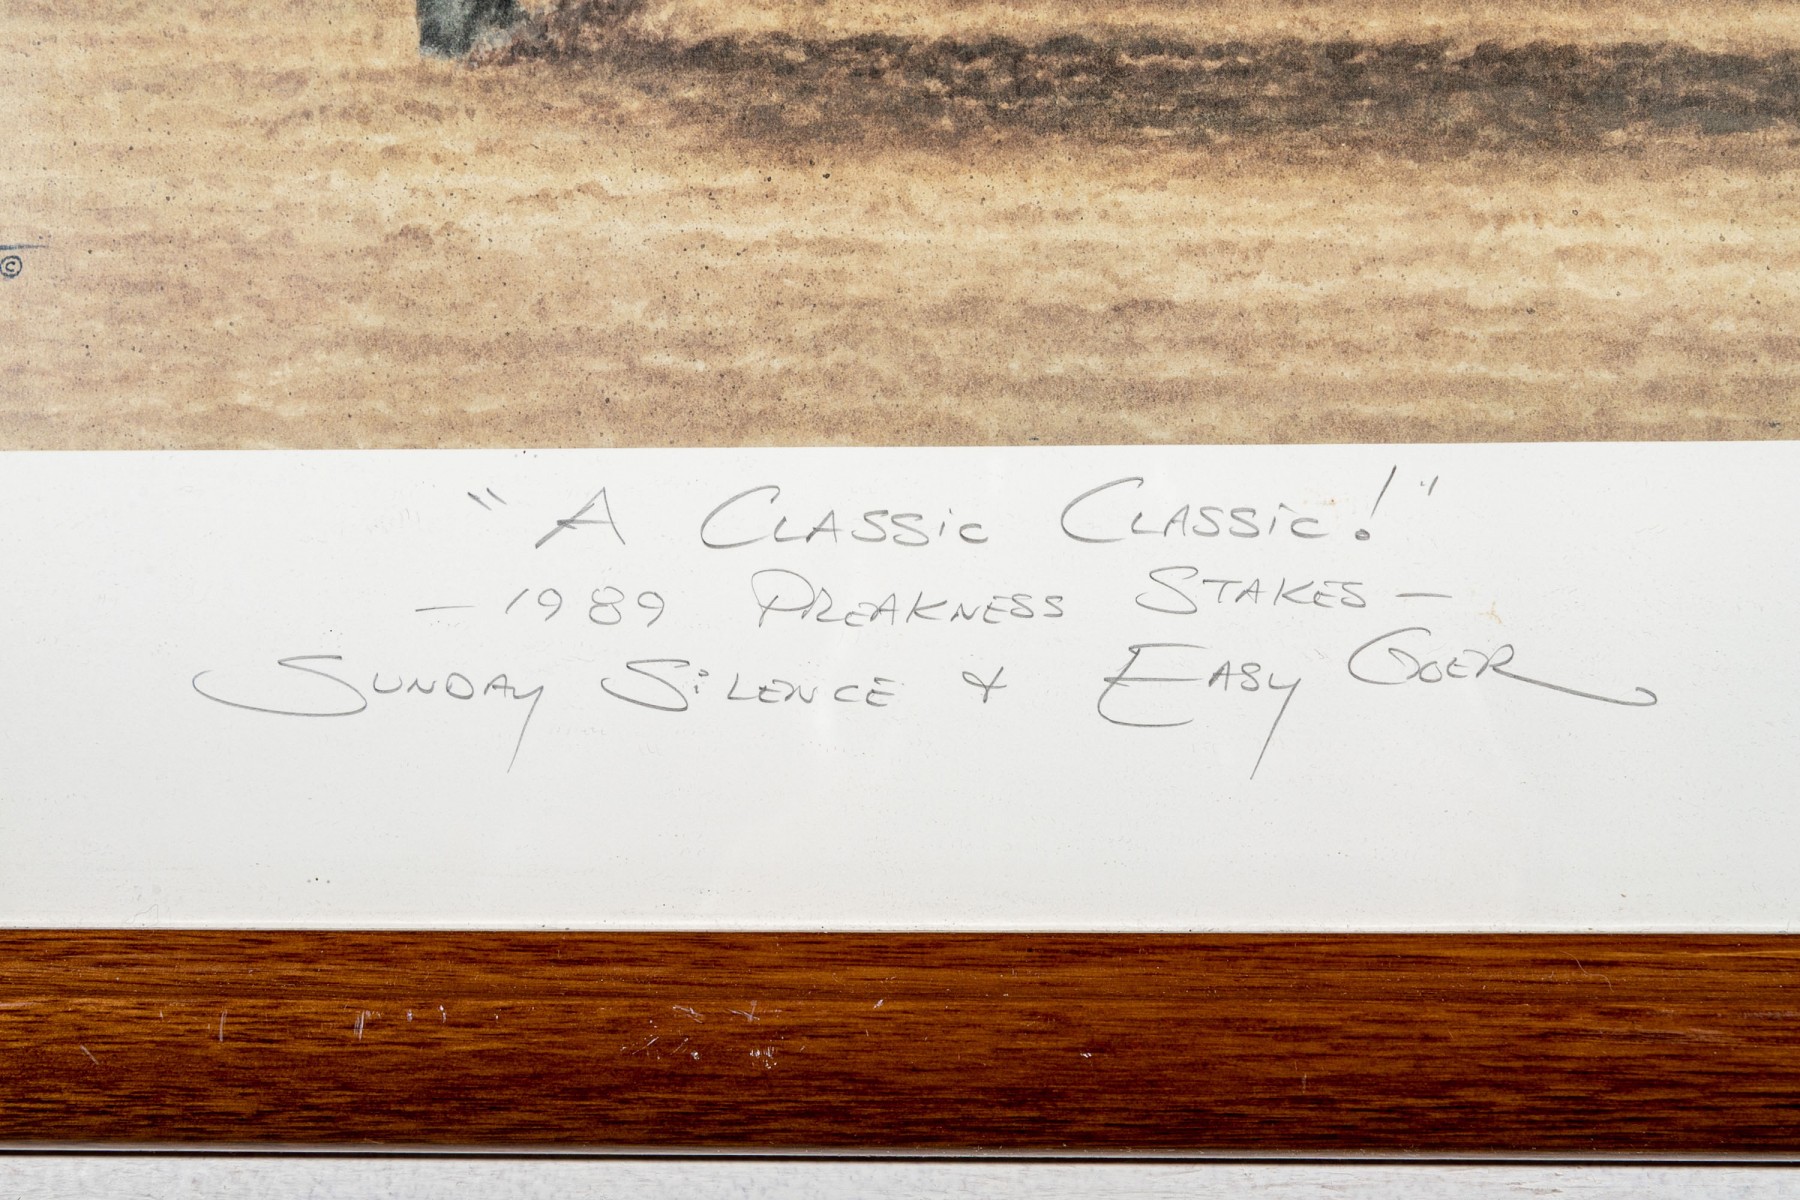 ©
"A Classic Classic!"
— 1989 Preakness Stakes —
Sunday Silence & Easy Goer